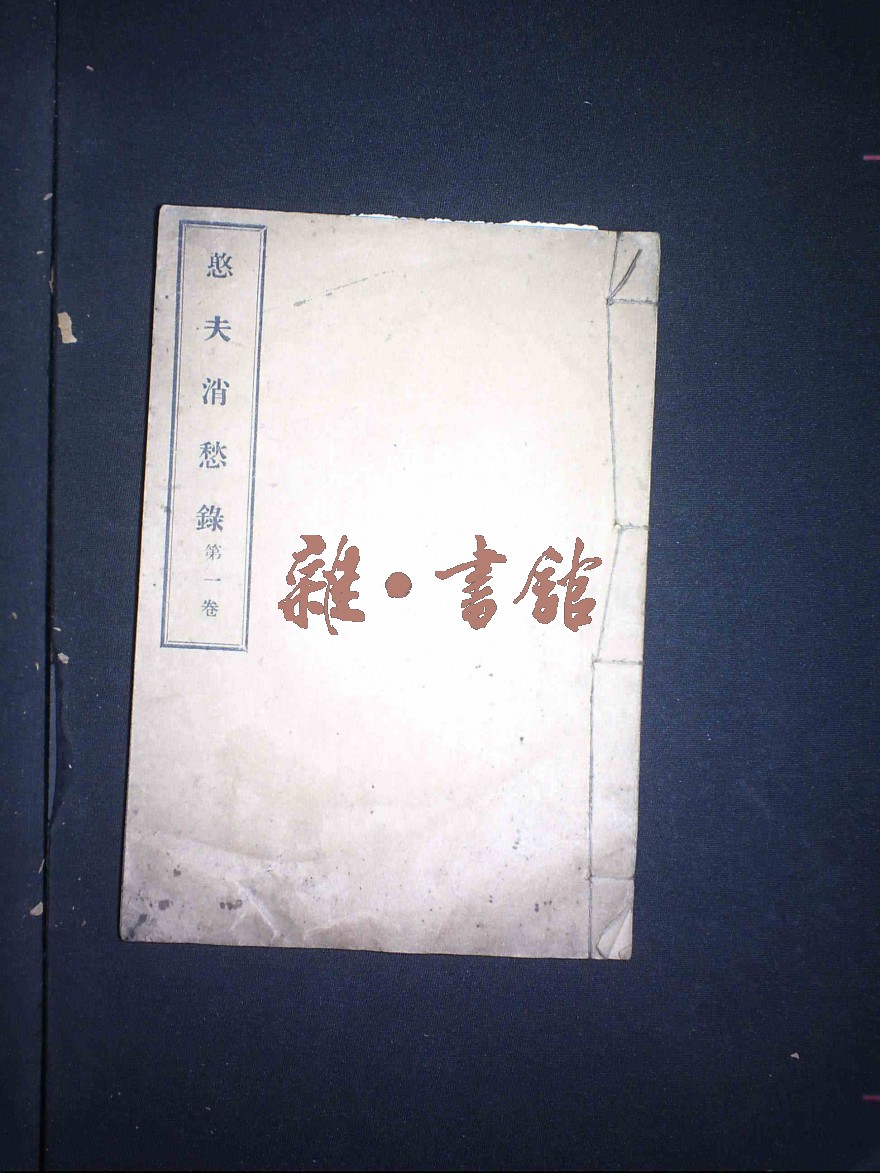 憨夫消愁錄第一卷
雜·書館